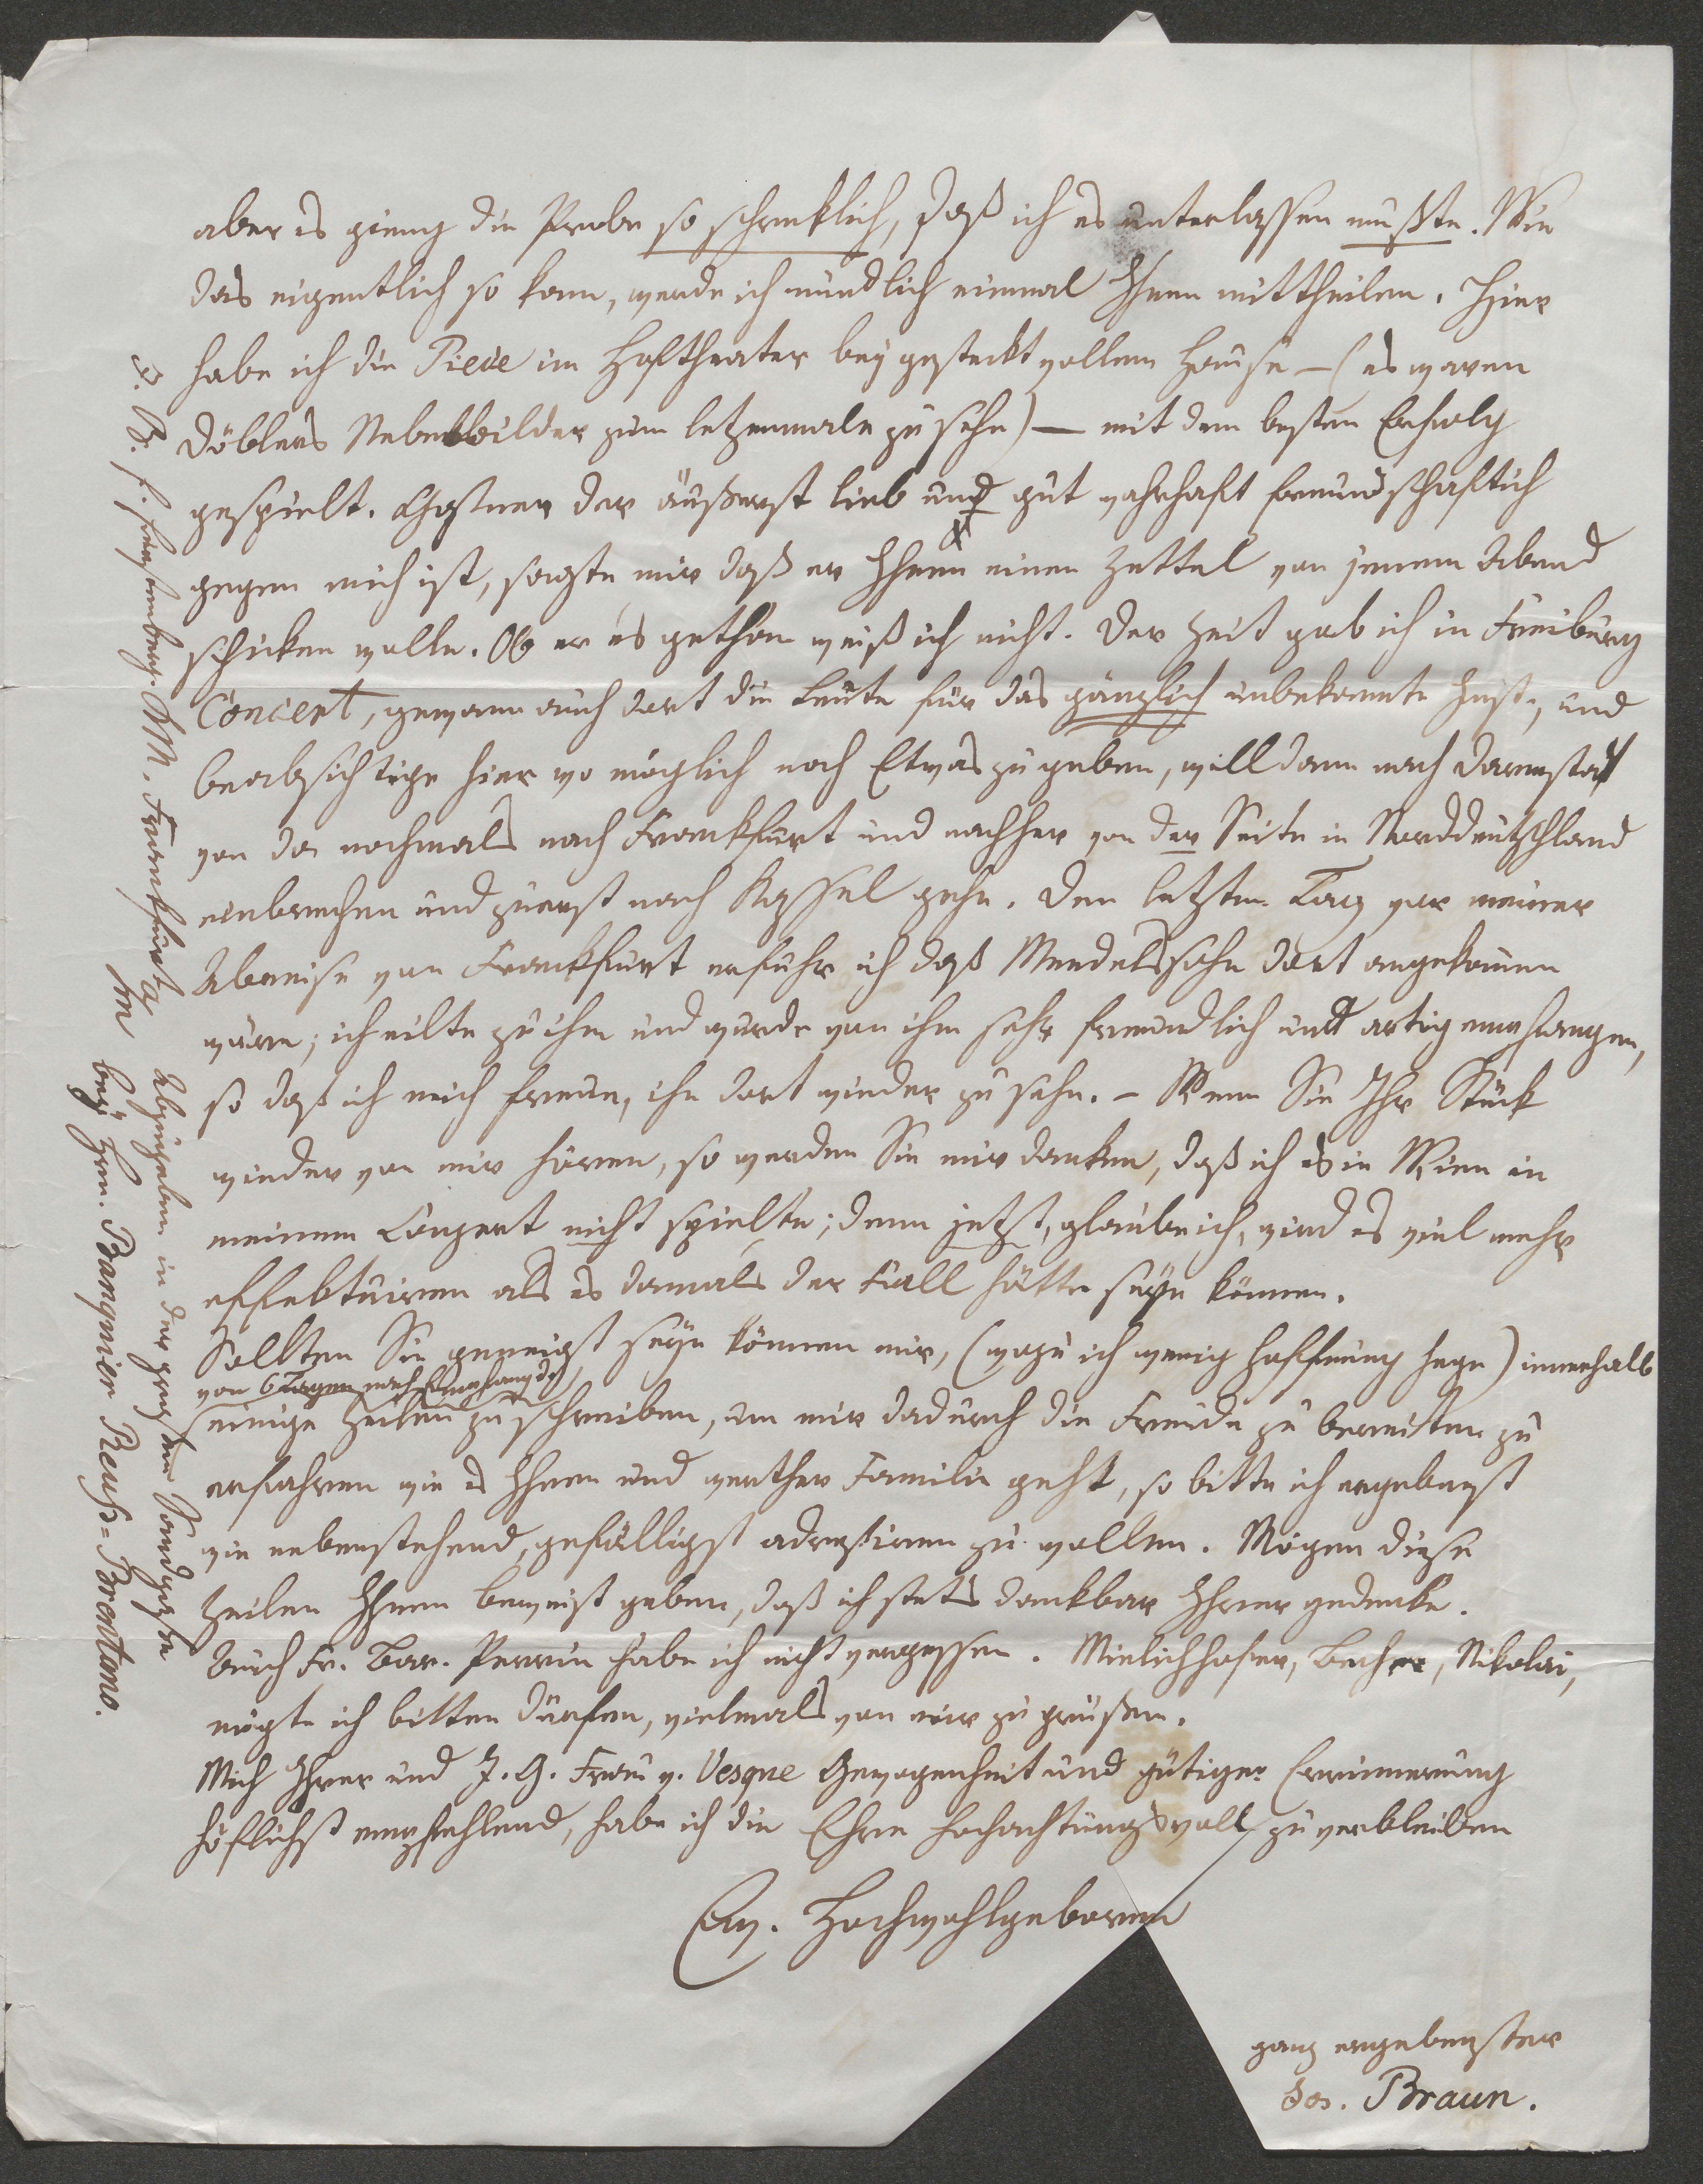 aber es gieng die Probe so schrecklich, daß ich es unterlassen mußte. Wie
das eigentlich so kam, werde ich mündlich einmal Ihnen mittheilen. Hier
habe ich die Pieçe im Hoftheater bey gesteckt vollem Hause – (es waren
Döblers Nebelbilder zum letzenmale zu sehn) – mit dem besten Erfolg
gespielt. der äußerst lieb und gut wahrhaft freundschaftlich
gegen mich ist, sagte mir daß er Ihnen einen Zettel von jenem Abend
schicken wolle. Ob er es gethan weiß ich nicht. Der Zeit gab ich in Freiburg
Concert, gewann auch dort die Leute für das gänzlich unbekannte Inst., und
beabsichtige hier wo möglich noch Etwas zu geben, will dann nach Darmstadt
von da nochmals nach Frankfurt und nachher von der Seite in Norddeutschland
einbrechen und zuerst nach Kassel gehn. Den letzten Tag vor meiner
Abreise von Frankfurt erfuhr ich daß Mendelssohn dort angekommen
wäre; ich eilte zu ihm und wurde von ihm sehr freundlich und artig empfangen,
so daß ich mich freue, ihn dort wieder zu sehn. – Wenn Sie Ihr Stück
wieder von mir hören, so werden Sie mir danken, daß ich es in Wien in
meinem Conzert nicht spielte; denn jetzt, glaube ich, wird es viel mehr
effektuiren als es damals der Fall hätte seyn können.
Sollten Sie geneigt seyn können mir, (wozu ich wenig Hoffnung hege) innerhalb
von 6 Tagen nach Empfang d.
einige Zeilen zu schreiben, um mir dadurch die Freude zu bereiten zu
erfahren wie es Ihnen und werther Familie geht, so bitte ich ergebenst
wie nebenstehend, gefälligst adressiren zu wollen. Mögen diese
Zeilen Ihnen Beweist geben, daß ich stets dankbar Ihrer gedenke.
Auch Fr. Bar. Pereira habe ich nicht vergessen. Mielichhofer, Becher, Nikolai,
mögte ich bitten dürfen, vielmals von mir zu grüßen.
Mich Ihrer und I. G. Frau v. Vesque Gewogenheit und gütiger Erinnerung
höflichst empfehlend, habe ich die Ehre hochachtungsvoll zu verbleiben
Ew. Hochwohlgeboren
ganz ergebenster
Jos. Braun.
J. B. f. fürstenberg. KM. Frankfurt a/M
Abzugeben in der großen Sandgasse
bey Hrn. Banquier Reuß=Brentano.